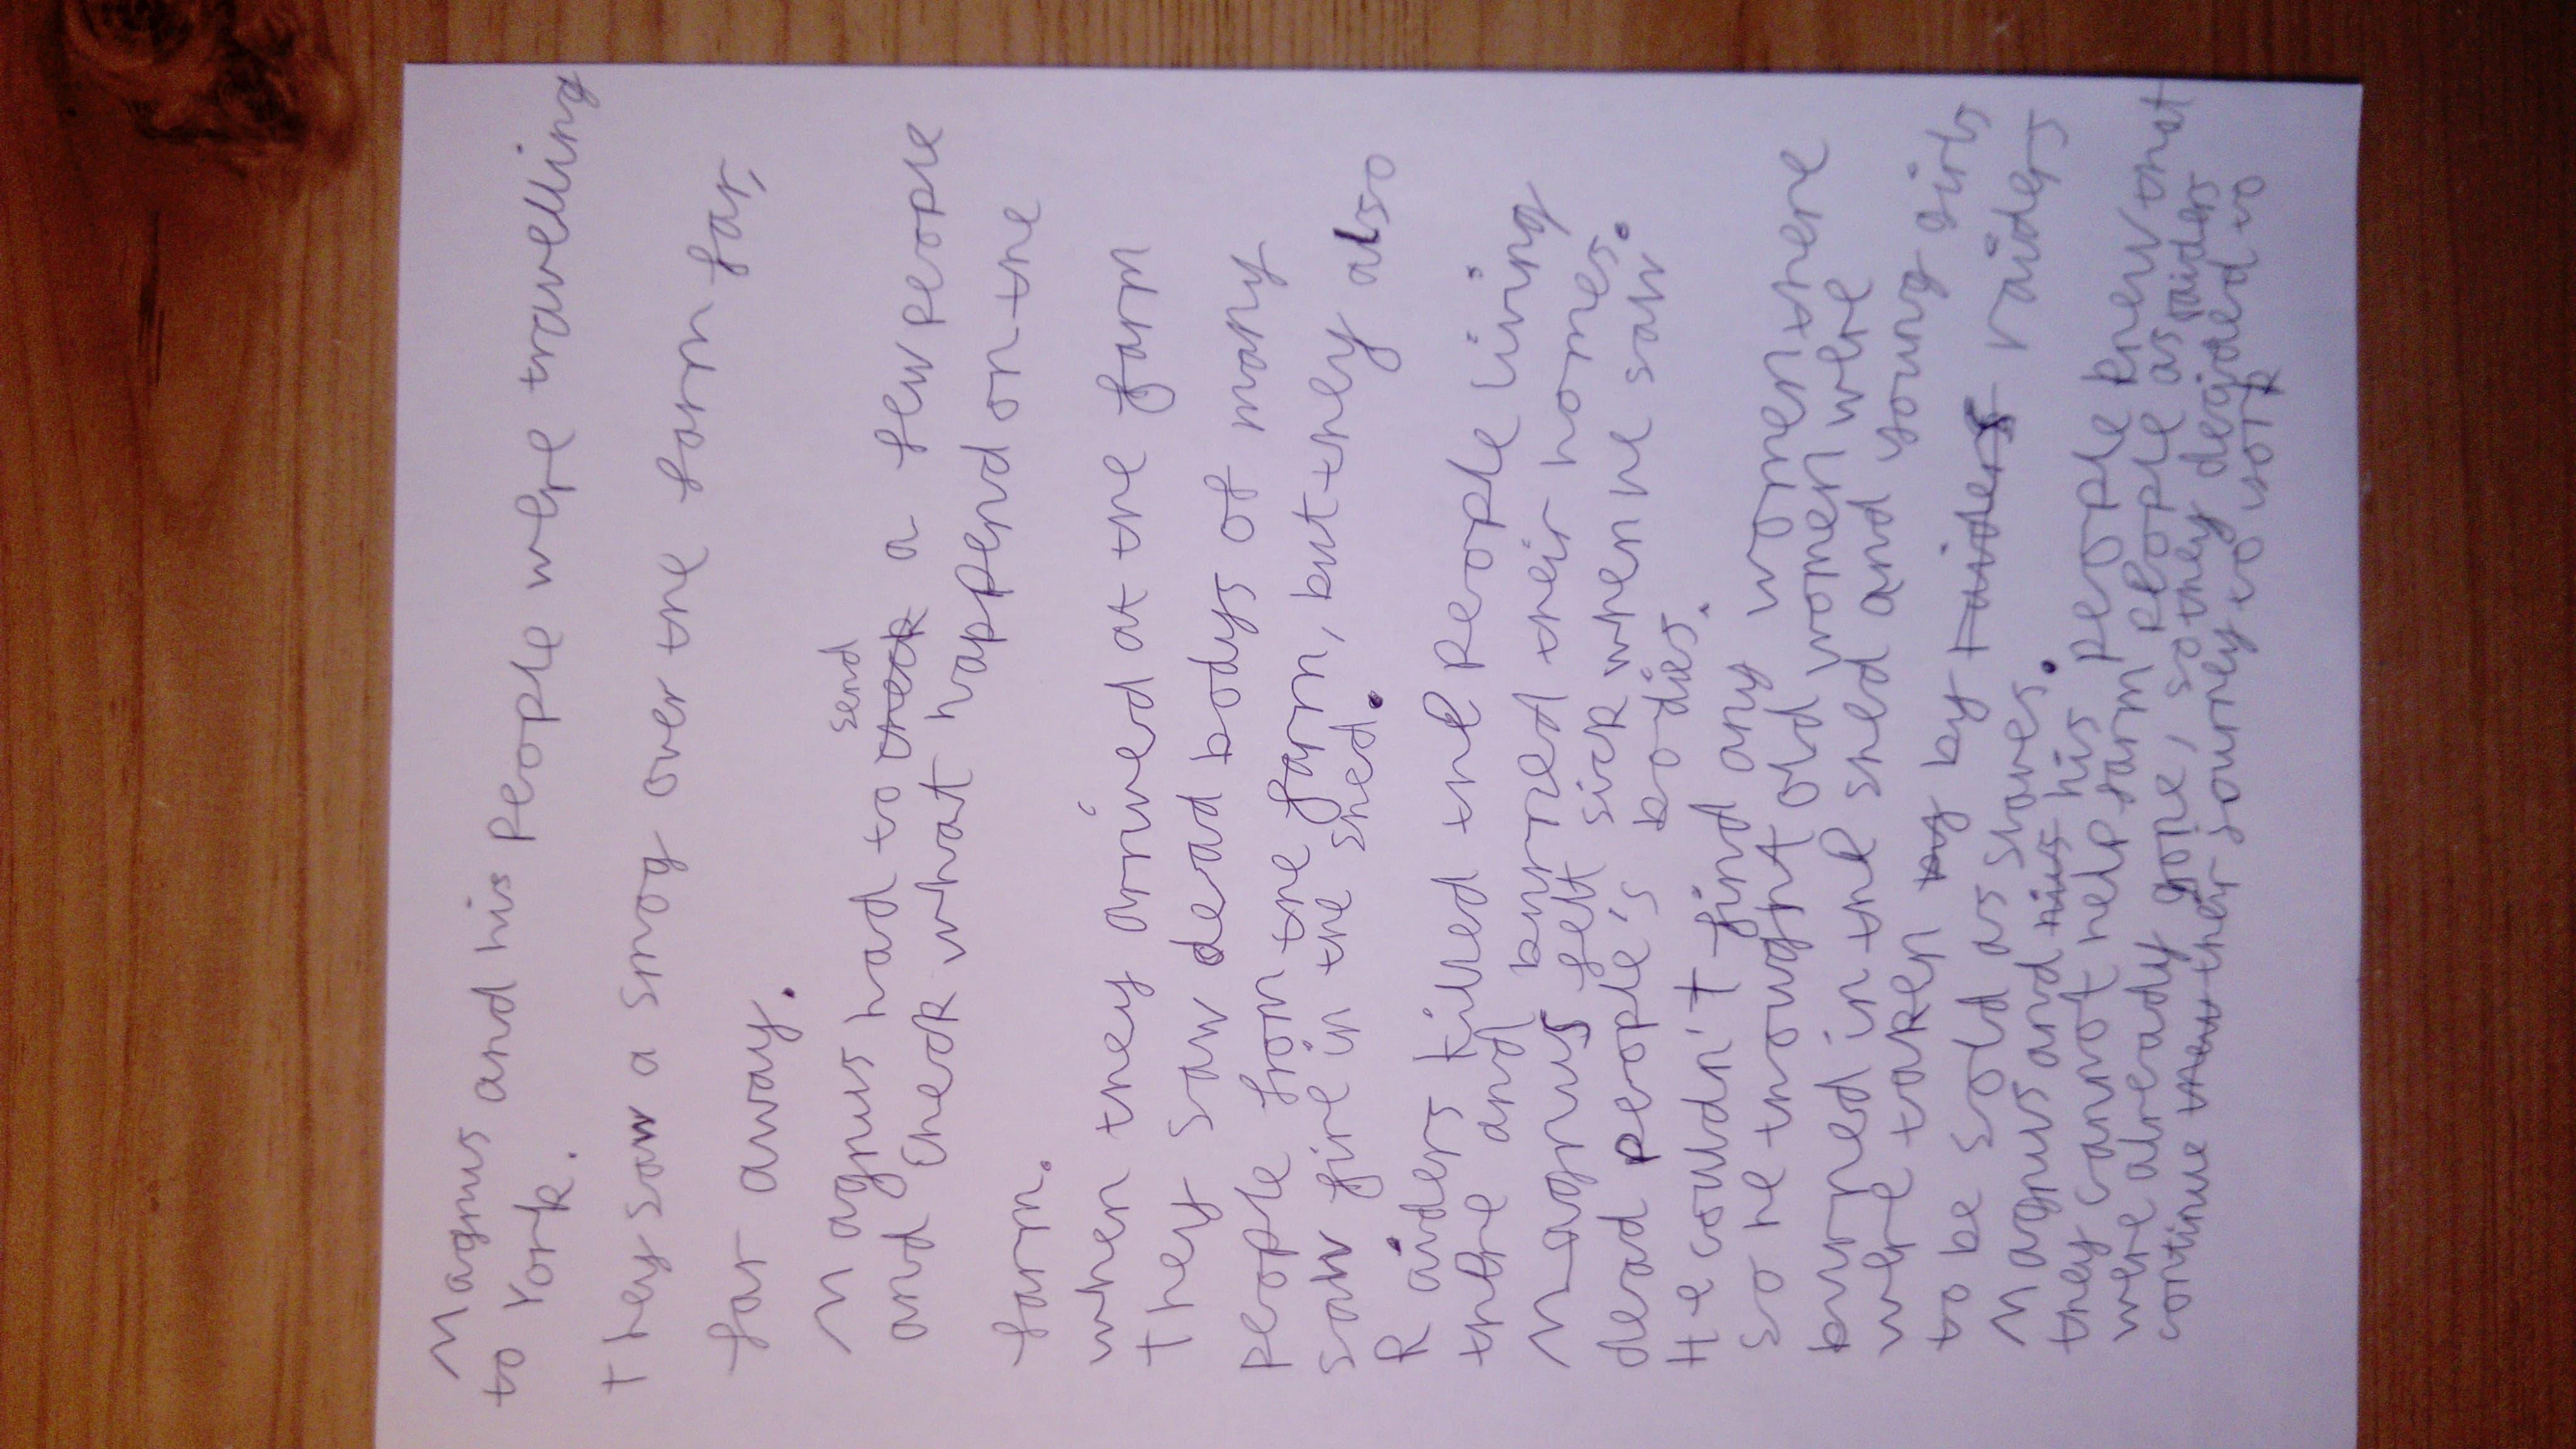 Magnus and his people where travelling
to York.
They saw a smog over the farm far,
far away.
Magnus had to check send a few people
and check what happend on the
farm.
when they arrived at the farm
They saw dead bodys of many
people from the farm, but they also
saw fire in the shed.
Raiders killed the people living
there and burned their homes.
Magnus felt sick when he saw
dead people's bodies.
He couldn't find any women there
so he thought old women were
burned in the shed and young girls
were taken by by raiders raiders
to be sold as slaves.
Magnus and his his people knew that
they cannot help farm people as raiders
were already gone, so they decided to
continue their journey to York